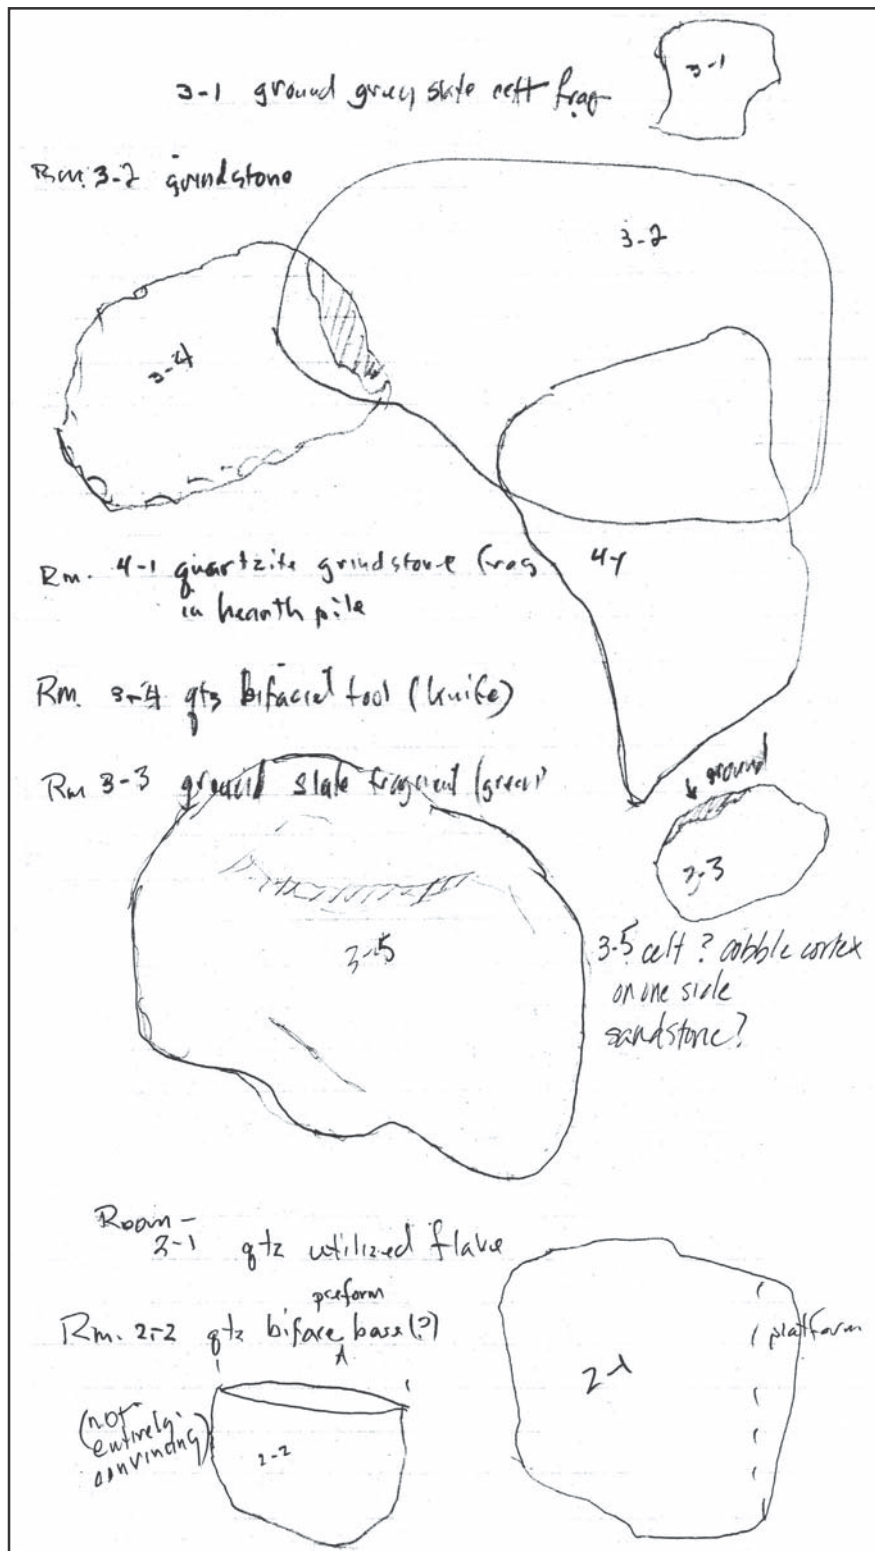 3-1 ground grey slate celt frag
3-1
Rm. 3-2 grindstone
3-2
3-4
Rm. 4-1 quartzite grindstone frag
in hearth pile
4-1
Rm. 3-4 qtz bifacial tool (knife)
Rm 3-3 ground slate fragment (green)
ground
3-3
3-5
3-5 celt? cobble cortex
on one side
sandstone?
Room -
2-1 qtz utilized flake
preform
Rm. 2-2 qtz biface base(?)
platform
2-1
(not
entirely
convincing)
2-2